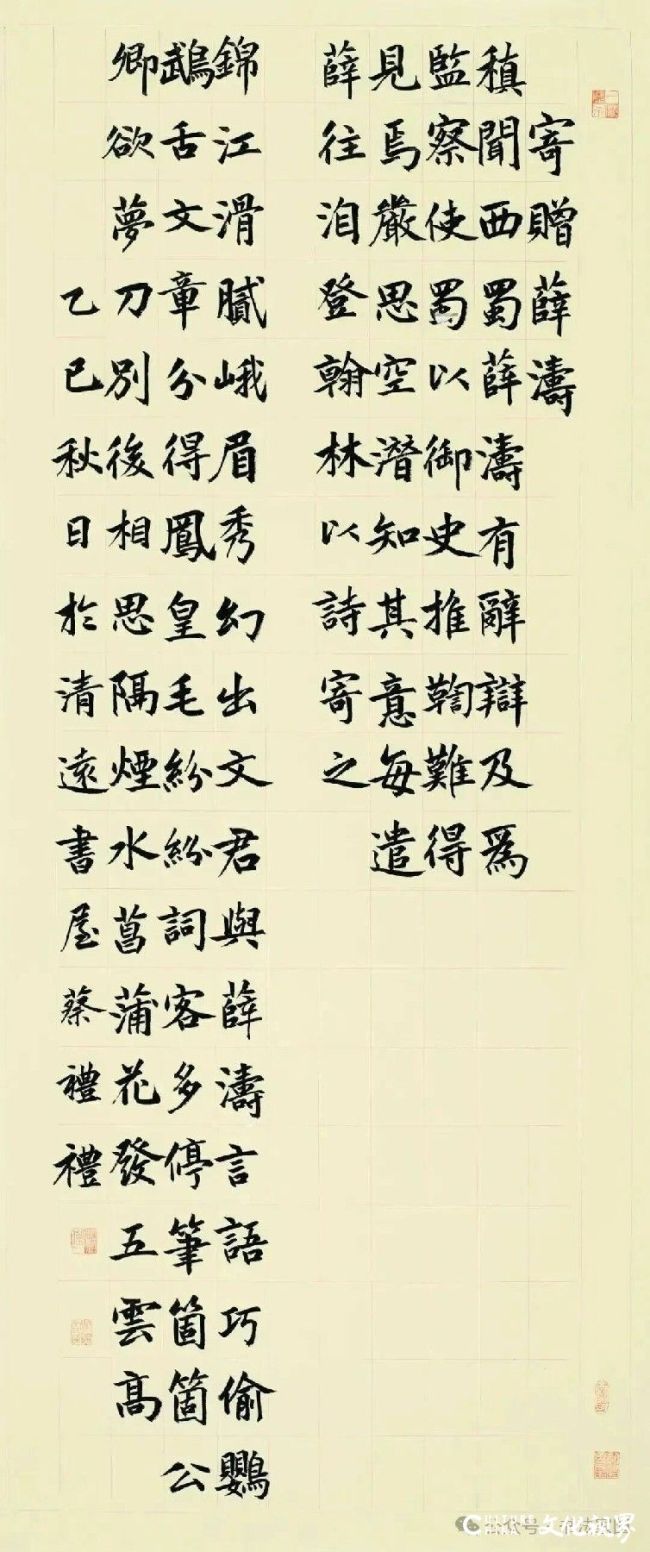 寄贈薛濤
稹聞西蜀薛濤有辭辯及爲
監察使蜀以御史推鞫難得
見焉嚴思空潛知其意每遣
薛往洎登翰林以詩寄之
錦江滑膩峨眉秀幻出文君與薛濤言語巧偷鸚
鵡舌文章分得鳳皇毛紛紛詞客多停筆箇箇公
卿欲夢刀別後相思隔煙水菖蒲花發五雲高
乙巳秋日於清遠書屋蔡禮禮
公众号
文化视界